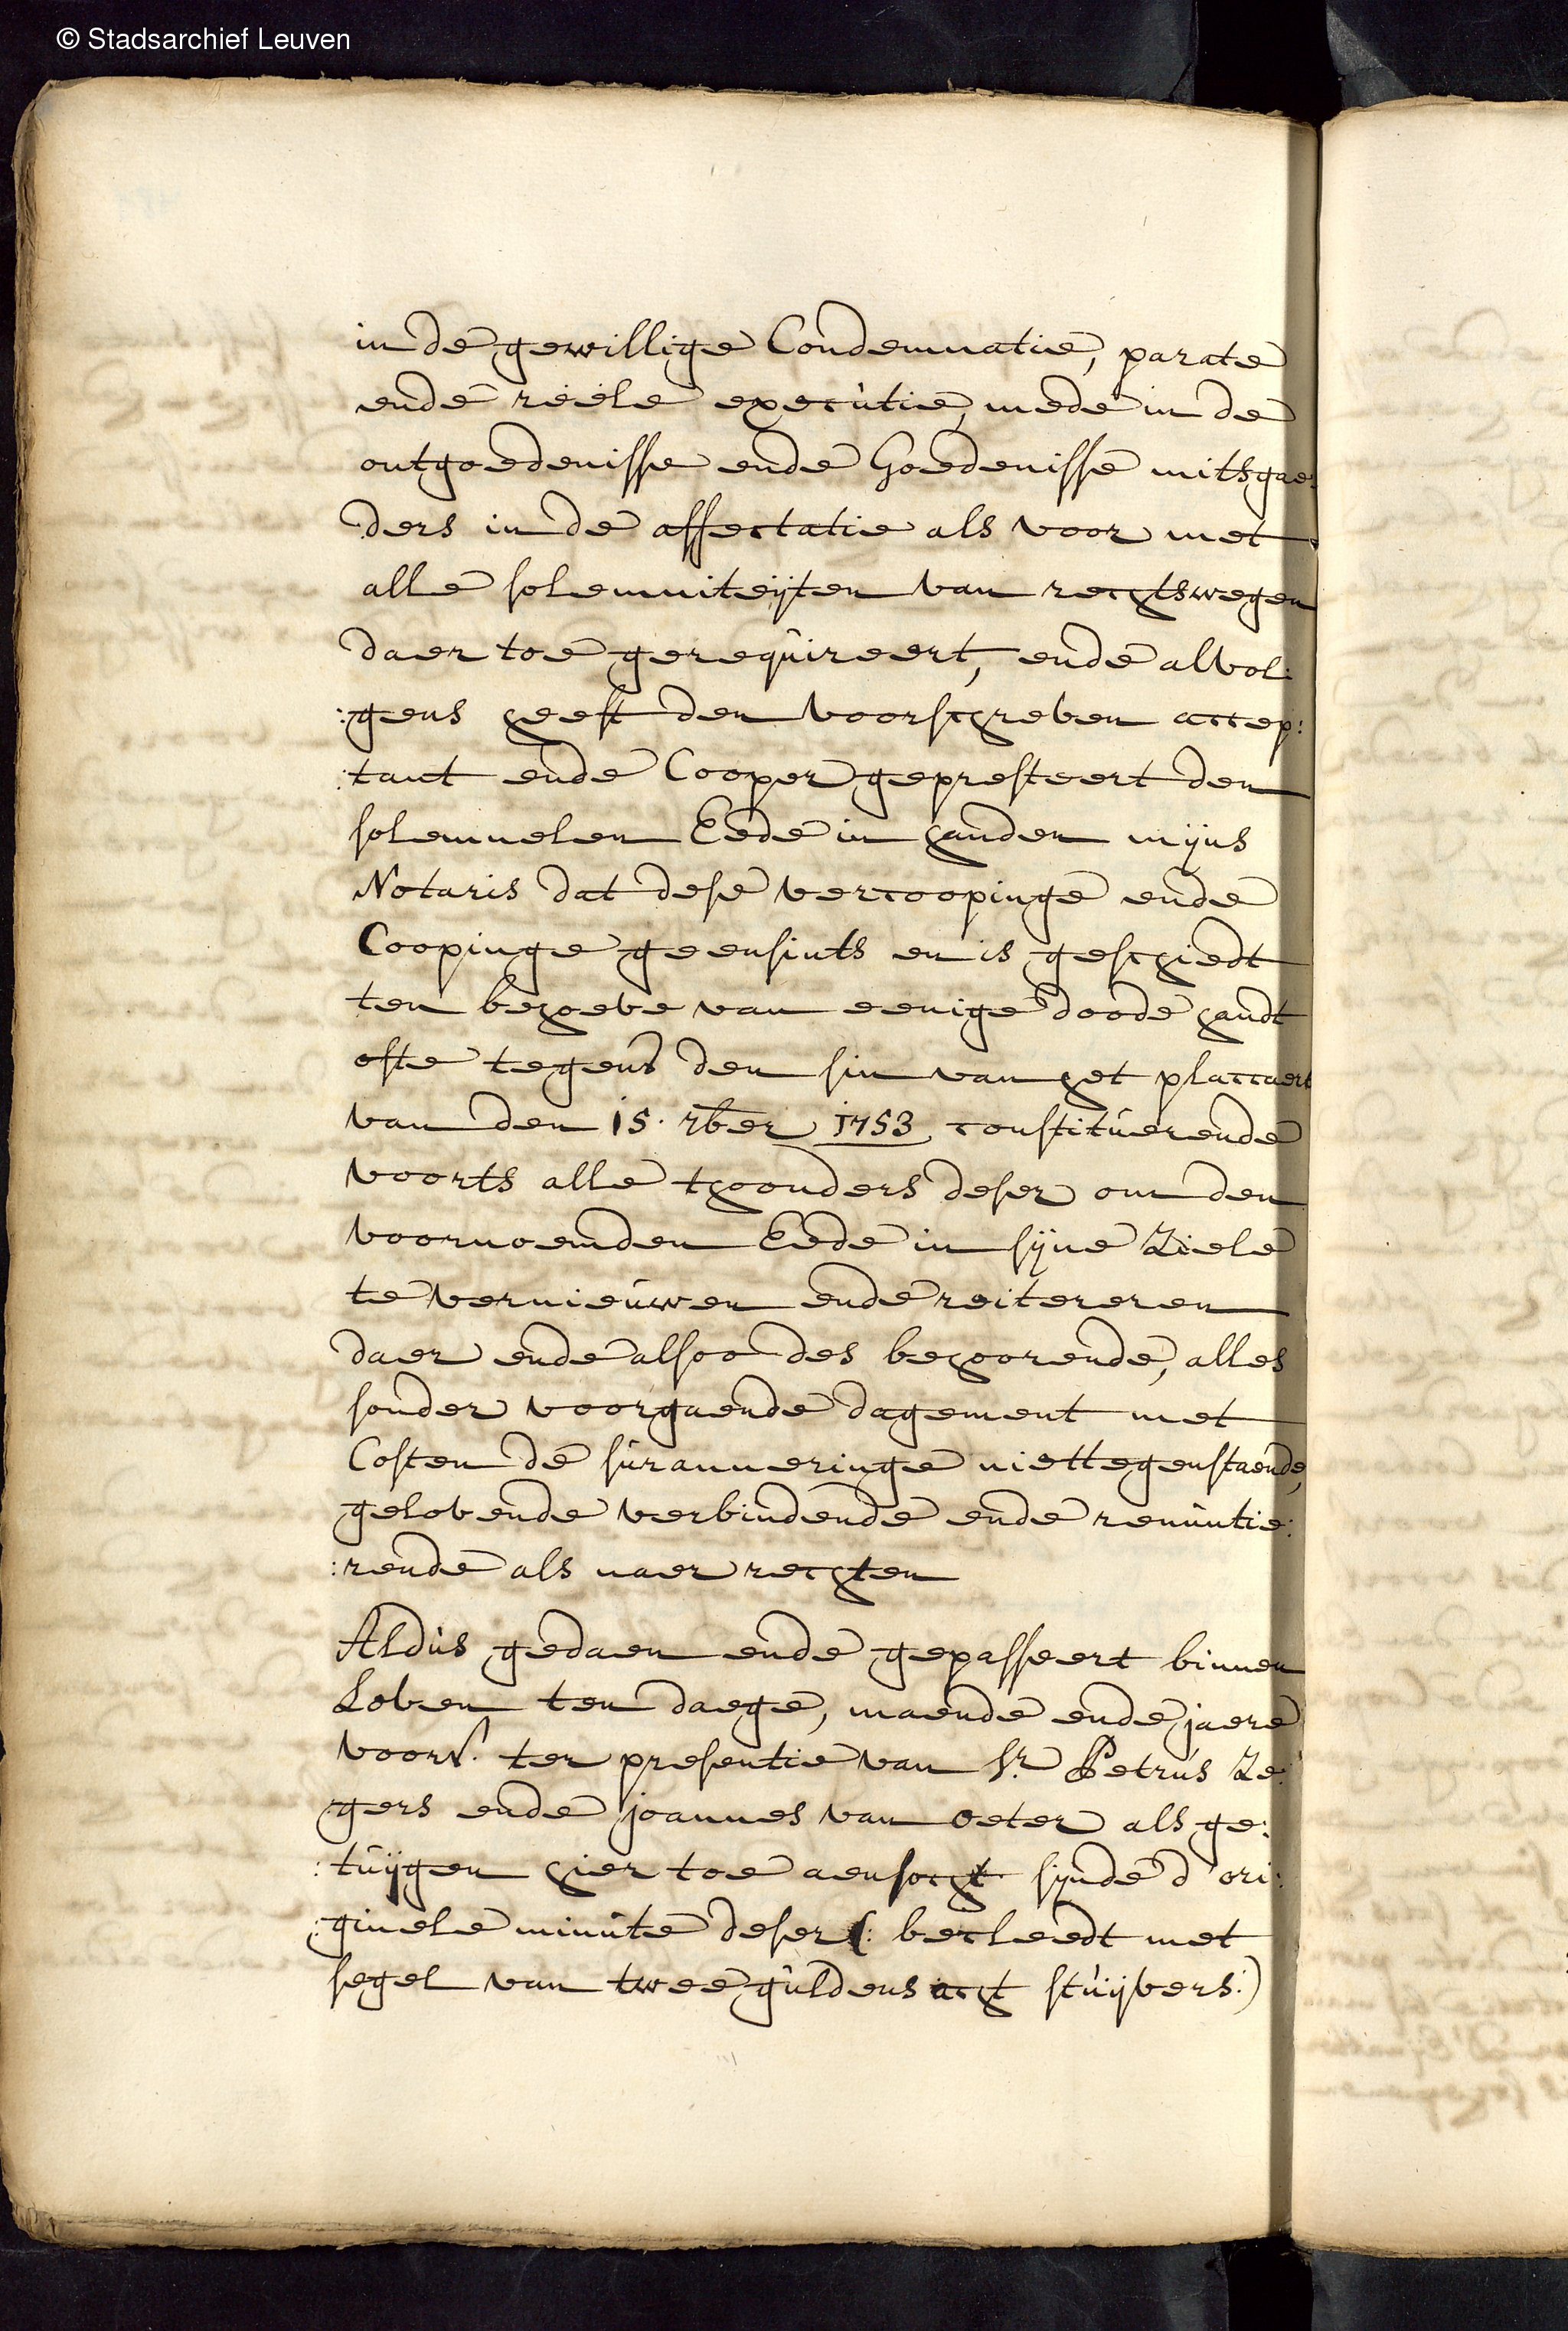 © Stadsarchief Leuven
in de gewillige Condemnatie, parate
ende reële executie, mede in de
ontgoedenisse ende Goedenisse mitsgae:
ders in de affectatie als voor met
alle solemniteijten van rechtswegen
daer toe gerequireert, ende alvol:
:gens heeft den voorschreven accep:
:tant ende Cooper gepresteert den
solemnelen Eede in handen mijns
Notaris dat dese vercoopinge ende
Coopinge geensints en is geschiedt
ten behoeve van eenige doode handt
ofte tegens den sin van het placcaert
van den 15. 7ber 1753 constituerende
voorts alle thoonders deser om den
voornoemden Eede in sijne Ziele
te vernieuwen ende reitereren
daer ende alsoo des behoorende, alles
sonder voorgaende dagement met
Costen de suranneringe niettegenstaende,
gelovende verbindende ende renuntie:
:rende als naer rechten
Aldus gedaen ende gepasseert binnen
Loven ten daege, maende ende jaere
voors. ter presentie van Sr. Petrus Ze:
gers ende joannes van oeter als ge:
:tuijgen hier toe aensocht sijnde d'ori:
:ginele minute deser (: becleedt met
segel van twee guldens acht stuijvers:)